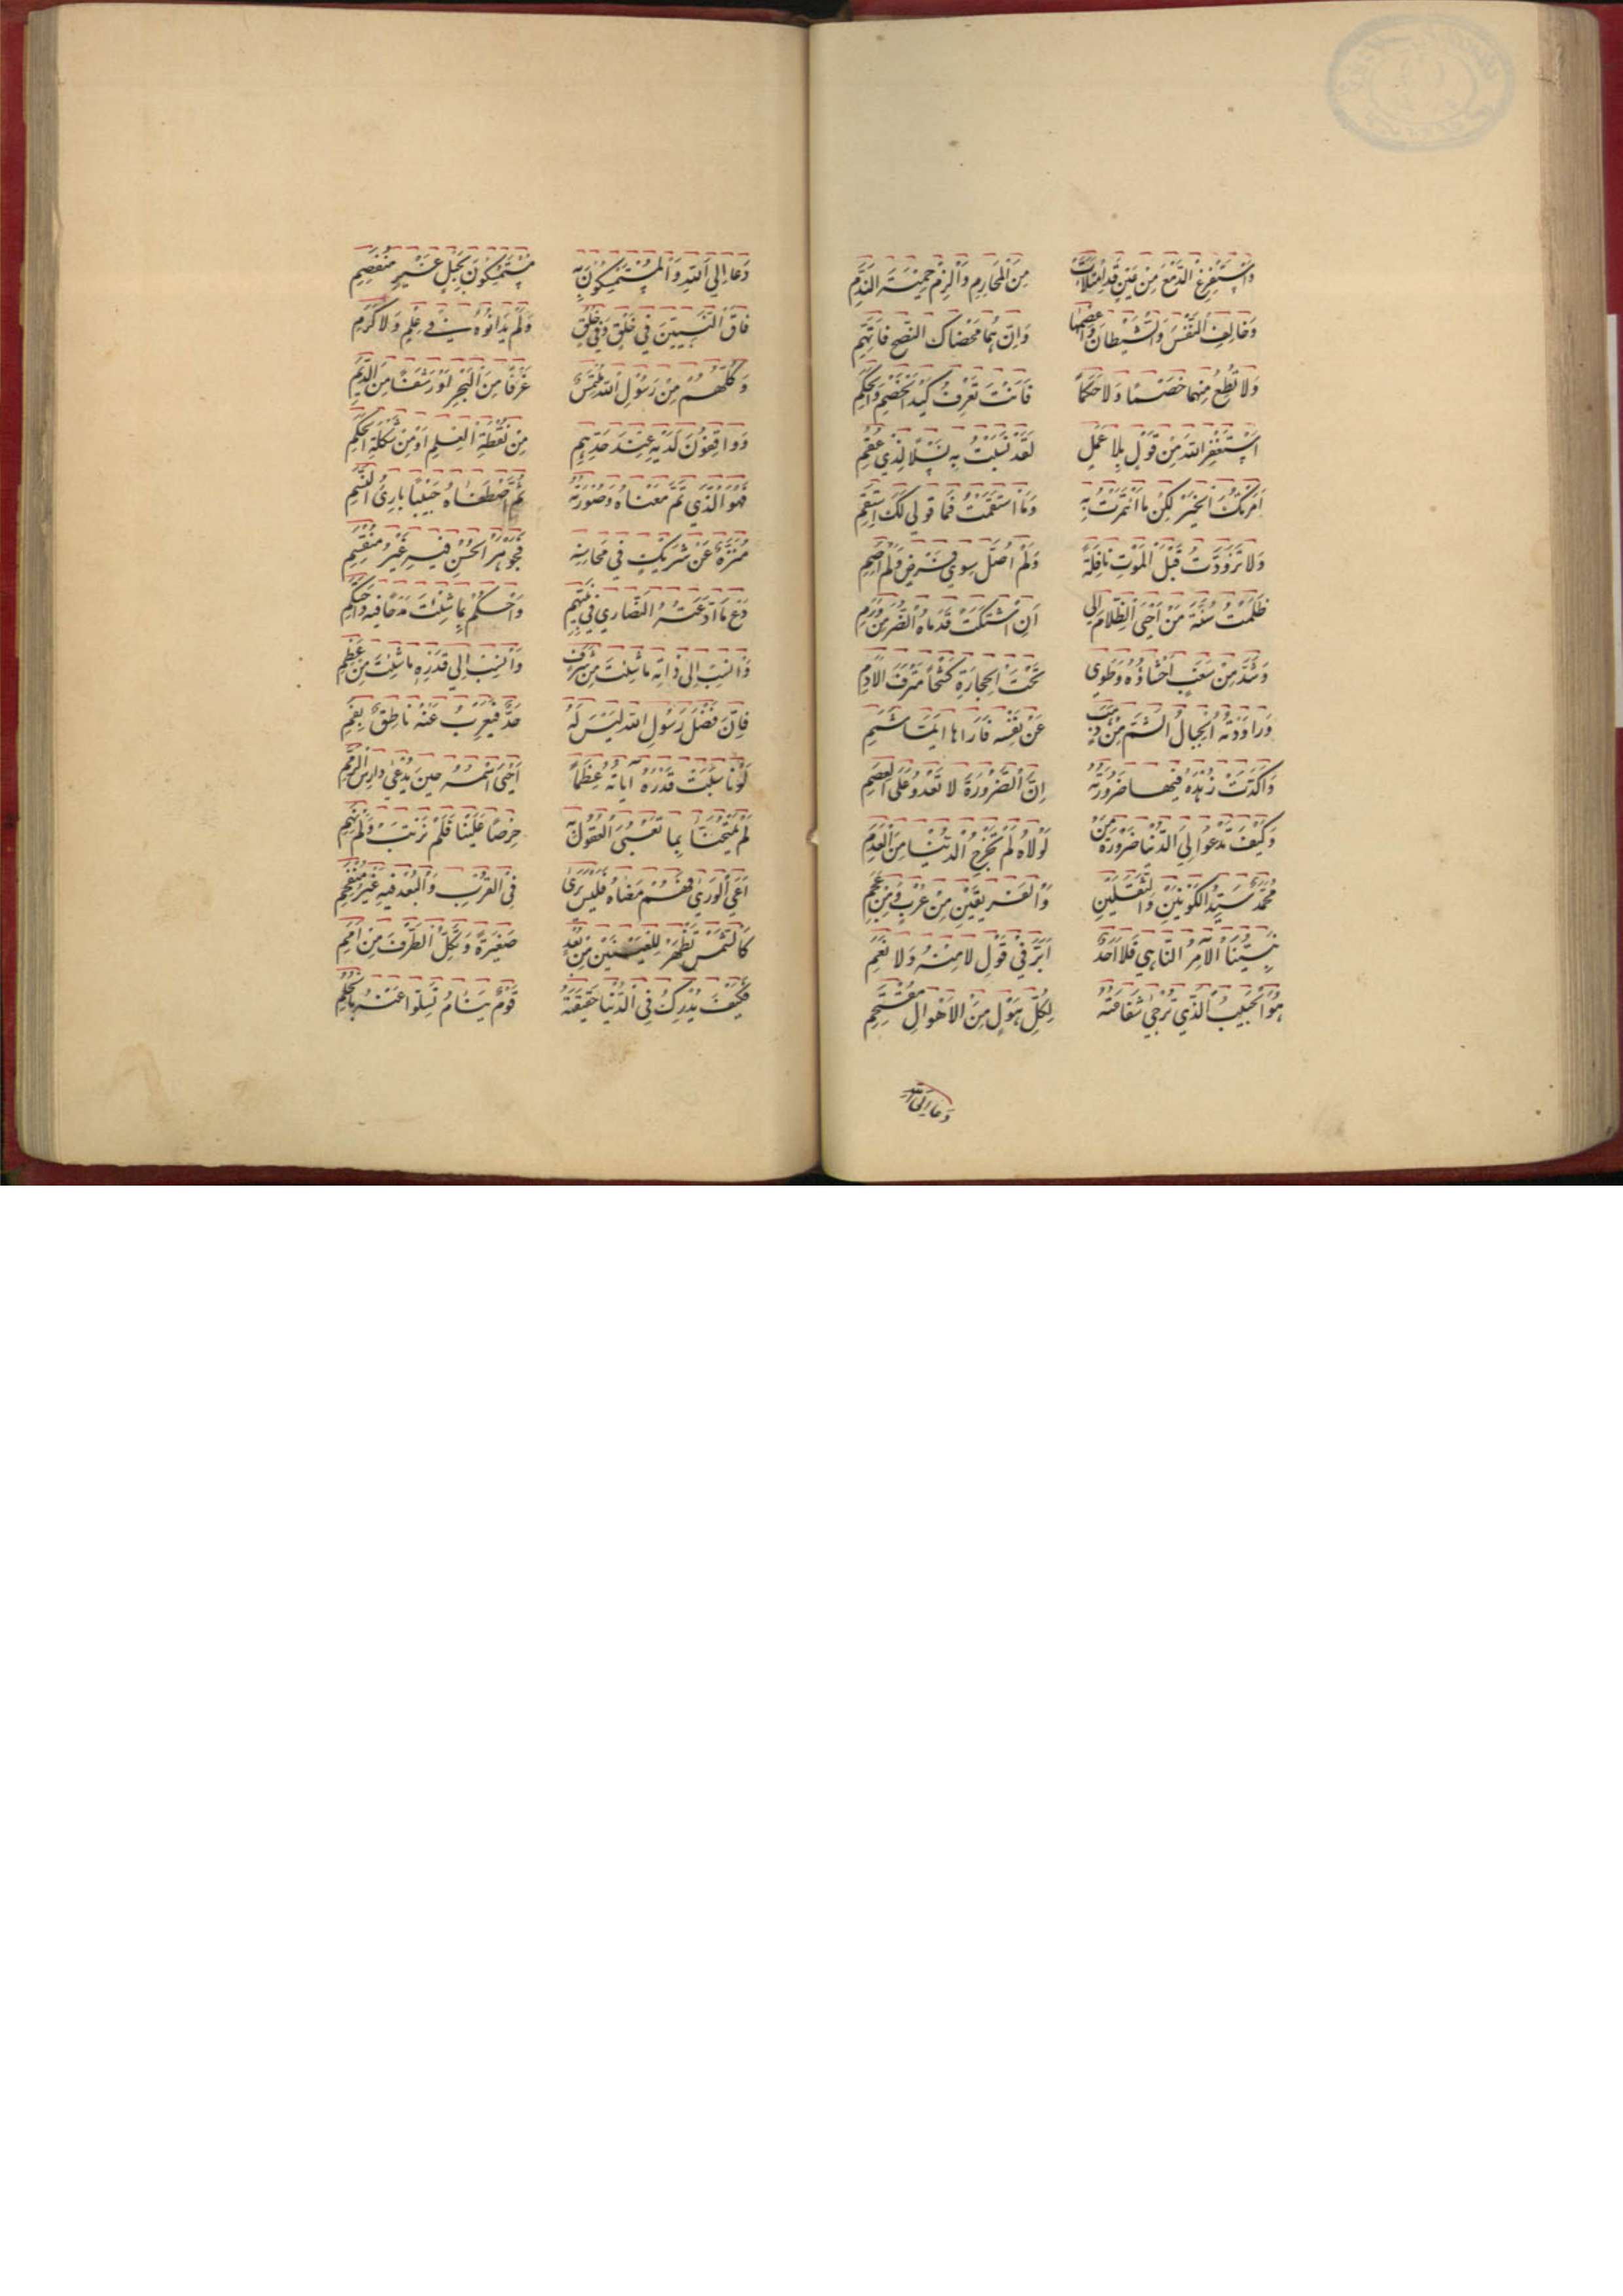 وَاسْتَفْرِغِ الدَّمْعَ مِنْ عَيْنٍ قَدِ امْتَلَأَتْ مِنَ الْمَحَارِمِ وَالْزَمْ حِمْيَةَ النَّدَمِ
وَخَالِفِ النَّفْسَ وَالشَّيْطَانَ وَاعْصِهِمَا وَاِنْ هُمَا مَحَّضَاكَ النُّصْحَ فَاتَّهِمِ
وَلَا تُطِعْ مِنْهُمَا خَصْمًا وَلَا حَكَمًا فَاَنْتَ تَعْرِفُ كَيْدَ الْخَصْمِ وَالْحَكَمِ
اَسْتَغْفِرُ اللهَ مِنْ قَوْلٍ بِلَا عَمَلٍ لَقَدْ نَسَبْتُ بِهِ نَسْلًا لِذِي عُقُمِ
اَمَرْتُكَ الْخَيْرَ لكِنْ مَا ائْتَمَرْتُ بِهِ وَمَا اسْتَقَمْتُ فَمَا قَوْلِي لَكَ اسْتَقِمِ
وَلَا تَزَوَّدْتُ قَبْلَ الْمَوْتِ نَافِلَةً وَلَمْ اُصَلِّ سِوَى فَرْضٍ وَلَمْ اَصُمِ
ظَلَمْتُ سُنَّةَ مَنْ اَحْيَى الظَّلَامَ اِلَى اَنِ اشْتَكَتْ قَدَمَاهُ الضُّرَّ مِنْ وَرَمِ
وَشَدَّ مِنْ سَغَبٍ اَحْشَاءَهُ وَطَوَى تَحْتَ الْحِجَارَةِ كَشْحًا مُتْرَفَ الْاَدَمِ
وَرَاوَدَتْهُ الْجِبَالُ الشُّمُّ مِنْ ذَهَبٍ عَنْ نَفْسِهِ فَاَرَاهَا اَيَّمَا شَمَمِ
وَاَكَّدَتْ زُهْدَهُ فِيهَا ضَرُورَتُهُ اِنَّ الضَّرُورَةَ لَا تَعْدُو عَلَى الْعِصَمِ
وَكَيْفَ تَدْعُو اِلَى الدُّنْيَا ضَرُورَةُ مَنْ لَوْلَاهُ لَمْ تُخْرَجِ الدُّنْيَا مِنَ الْعَدَمِ
مُحَمَّدٌ سَيِّدُ الْكَوْنَيْنِ وَالثَّقَلَيْنِ وَالْفَرِيقَيْنِ مِنْ عُرْبٍ وَمِنْ عَجَمِ
نَبِيُّنَا الْآمِرُ النَّاهِي فَلَا اَحَدٌ اَبَرَّ فِي قَوْلِ لَا مِنْهُ وَلَا نَعَمِ
هُوَ الْحَبِيبُ الَّذِي تُرْجَى شَفَاعَتُهُ لِكُلِّ هَوْلٍ مِنَ الْاَهْوَالِ مُقْتَحَمِ
دَعَا اِلَى اللهِ
دَعَا اِلَى اللهِ وَالْمُسْتَمْسِكُونَ بِهِ مُسْتَمْسِكُونَ بِحَبْلٍ غَيْرِ مُنْفَصِمِ
فَاقَ النَّبِيِّينَ فِي خَلْقٍ وَفِي خُلُقٍ وَلَمْ يُدَانُوهُ فِي عِلْمٍ وَلَا كَرَمِ
وَكُلُّهُمْ مِنْ رَسُولِ اللهِ مُلْتَمِسٌ غَرْفًا مِنَ الْبَحْرِ اَوْ رَشْفًا مِنَ الدِّيَمِ
وَوَاقِفُونَ لَدَيْهِ عِنْدَ حَدِّهِمِ مِنْ نُقْطَةِ الْعِلْمِ اَوْ مِنْ شَكْلَةِ الْحِكَمِ
فَهُوَ الَّذِي تَمَّ مَعْنَاهُ وَصُورَتُهُ ثُمَّ اصْطَفَاهُ حَبِيبًا بَارِئُ النَّسَمِ
مُنَزَّهٌ عَنْ شَرِيكٍ فِي مَحَاسِنِهِ فَجَوْهَرُ الْحُسْنِ فِيهِ غَيْرُ مُنْقَسِمِ
دَعْ مَا ادَّعَتْهُ النَّصَارَى فِي نَبِيِّهِمِ وَاحْكُمْ بِمَا شِئْتَ مَدْحًا فِيهِ وَاحْتَكِمِ
وَانْسُبْ اِلَى ذَاتِهِ مَا شِئْتَ مِنْ شَرَفٍ وَانْسُبْ اِلَى قَدْرِهِ مَا شِئْتَ مِنْ عِظَمِ
فَاِنَّ فَضْلَ رَسُولِ اللهِ لَيْسَ لَهُ حَدٌّ فَيُعْرِبَ عَنْهُ نَاطِقٌ بِفَمِ
لَوْ نَاسَبَتْ قَدْرَهُ آيَاتُهُ عِظَمًا اَحْيَى اسْمُهُ حِينَ يُدْعَى دَارِسَ الرِّمَمِ
لَمْ يَمْتَحِنَّا بِمَا تَعْيَى الْعُقُولُ بِهِ حِرْصًا عَلَيْنَا فَلَمْ نَرْتَبْ وَلَمْ نَهِمِ
اَعْيَى الْوَرَى فَهْمُ مَعْنَاهُ فَلَيْسَ يُرَى فِي الْقُرْبِ وَالْبُعْدِ فِيهِ غَيْرُ مُنْفَحِمِ
كَالشَّمْسِ تَظْهَرُ لِلْعَيْنَيْنِ مِنْ بُعُدٍ صَغِيرَةً وَتُكِلُّ الطَّرْفَ مِنْ اَمَمِ
فَكَيْفَ يُدْرِكُ فِي الدُّنْيَا حَقِيقَتَهُ قَوْمٌ نِيَامٌ تَسَلَّوْا عَنْهُ بِالْحُلُمِ